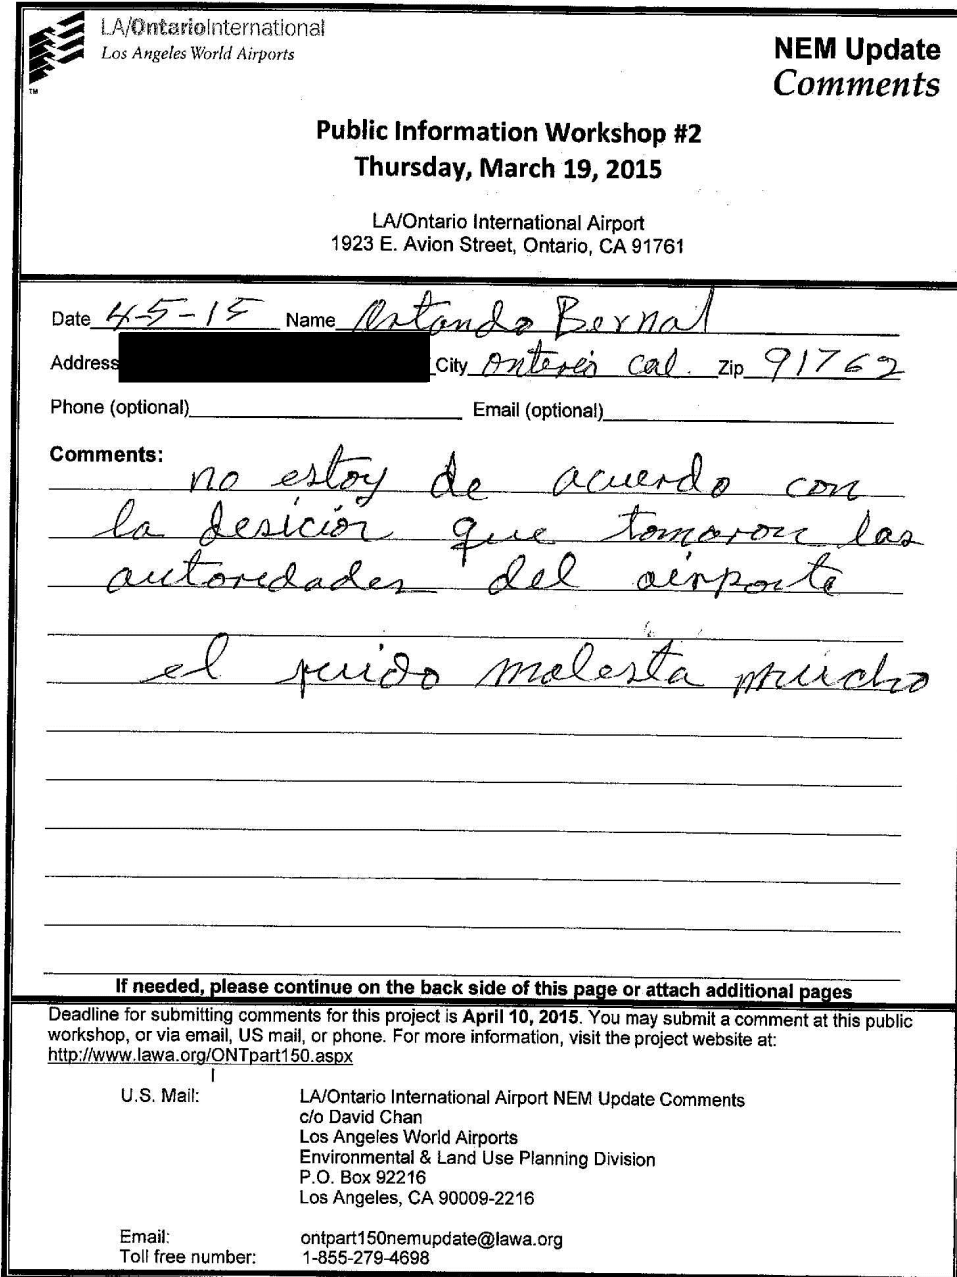 LA/OntarioInternational
Los Angeles World Airports
TM
NEM Update
Comments
Public Information Workshop #2
Thursday, March 19, 2015
LA/Ontario International Airport
1923 E. Avion Street, Ontario, CA 91761
Date 4-5-15 Name Bernal
Address City cal. Zip 91762
Phone (optional) Email (optional)
Comments:
no estoy de acuerdo con
la desición que tomaron las
autoredades del airporte
el ruido molesta mucho
If needed, please continue on the back side of this page or attach additional pages
Deadline for submitting comments for this project is April 10, 2015. You may submit a comment at this public
workshop, or via email, US mail, or phone. For more information, visit the project website at:
http://www.lawa.org/ONTpart150.aspx
U.S. Mail: LA/Ontario International Airport NEM Update Comments
c/o David Chan
Los Angeles World Airports
Environmental & Land Use Planning Division
P.O. Box 92216
Los Angeles, CA 90009-2216
Email: ontpart150nemupdate@lawa.org
Toll free number: 1-855-279-4698